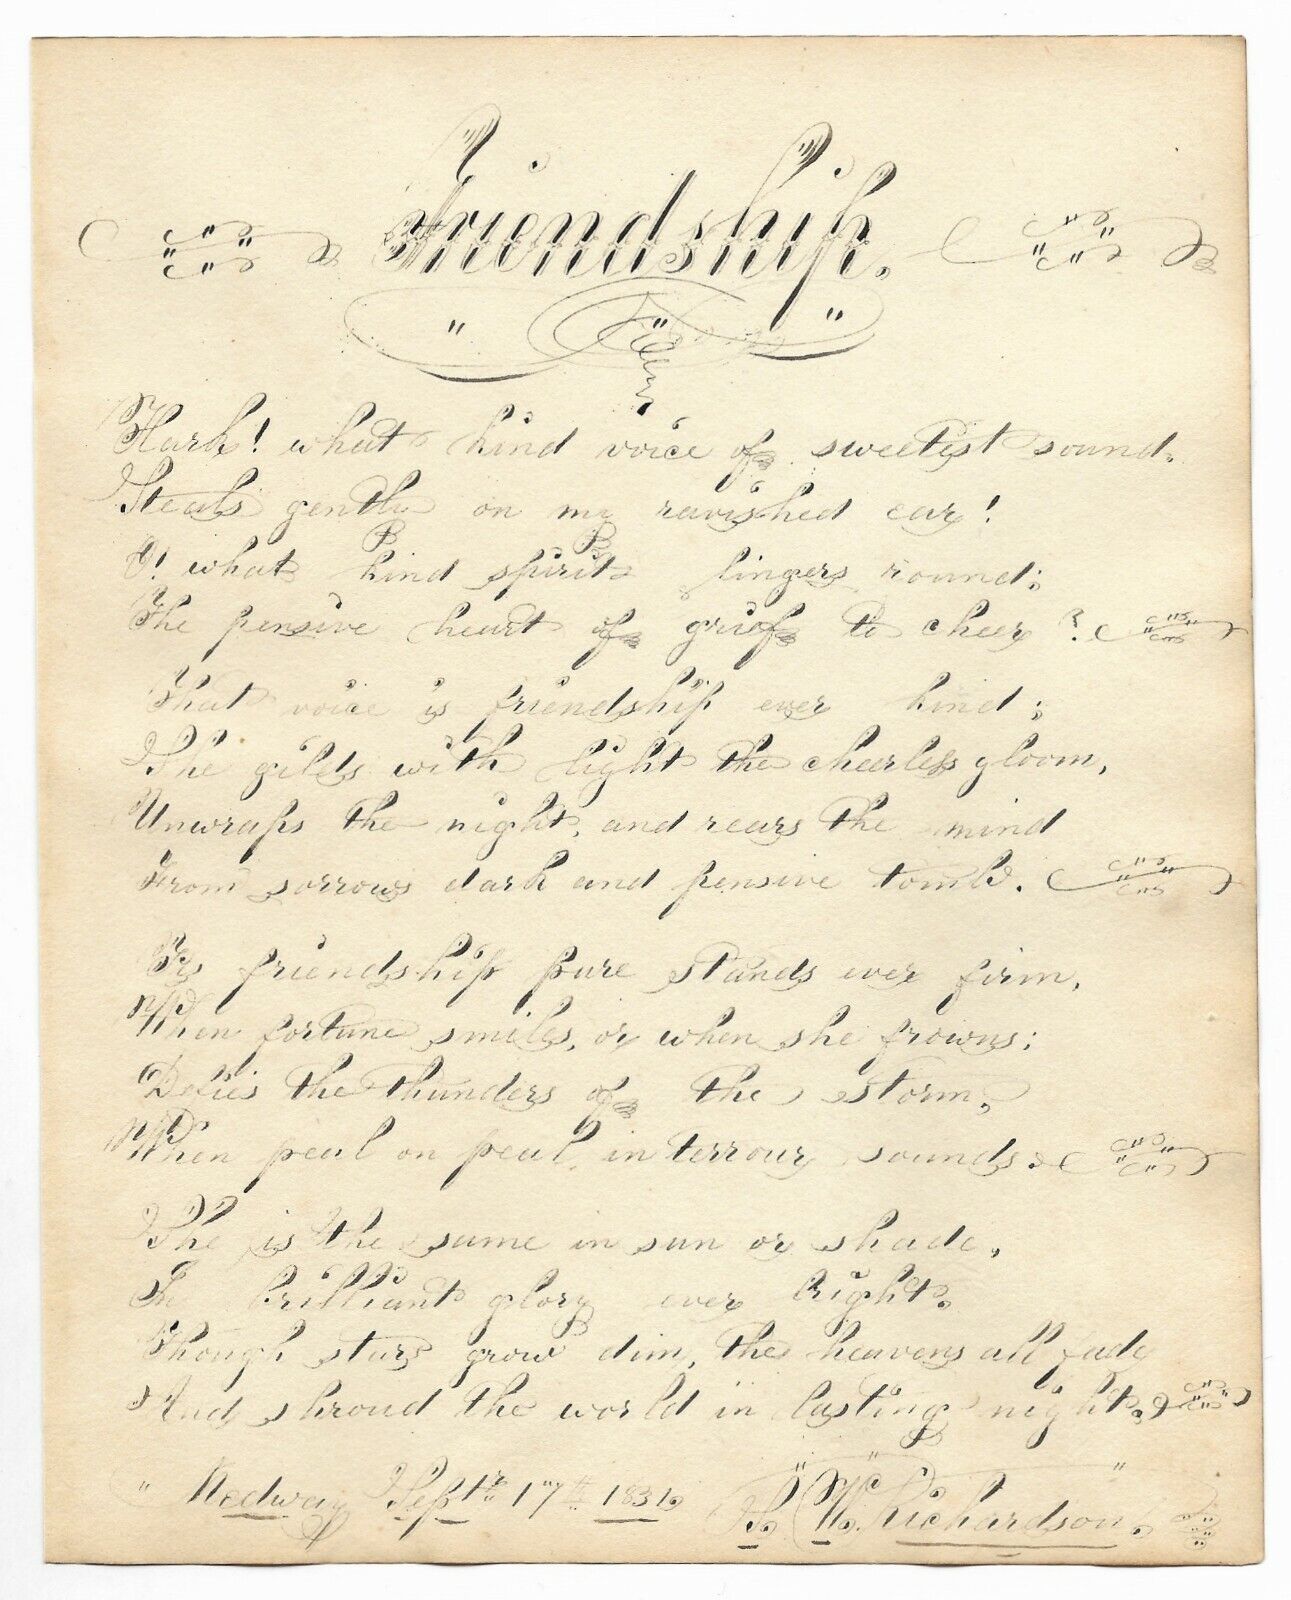 Friendship.
Hark! what kind voice of sweetest sound.
Steals gently on my ravished ear!
O! what kind spirit lingers round;
The pensive heart of grief to cheer?
That voice is friendship ever kind;
She gilds with light the cheerless gloom,
Unwraps the night, and rears the mind
From sorrows dark and pensive tomb.
Yes friendship pure stands ever firm,
When fortune smiles, or when she frowns;
Defies the thunders of the storm,
When peal on peal, in terrour sounds.
She is the same in sun or shade,
In brilliant glory ever bright.
Though stars grow dim, the heavens all fade
And shroud the world in lasting night.
" Medway Septr 17th 1831. W. Richardson.